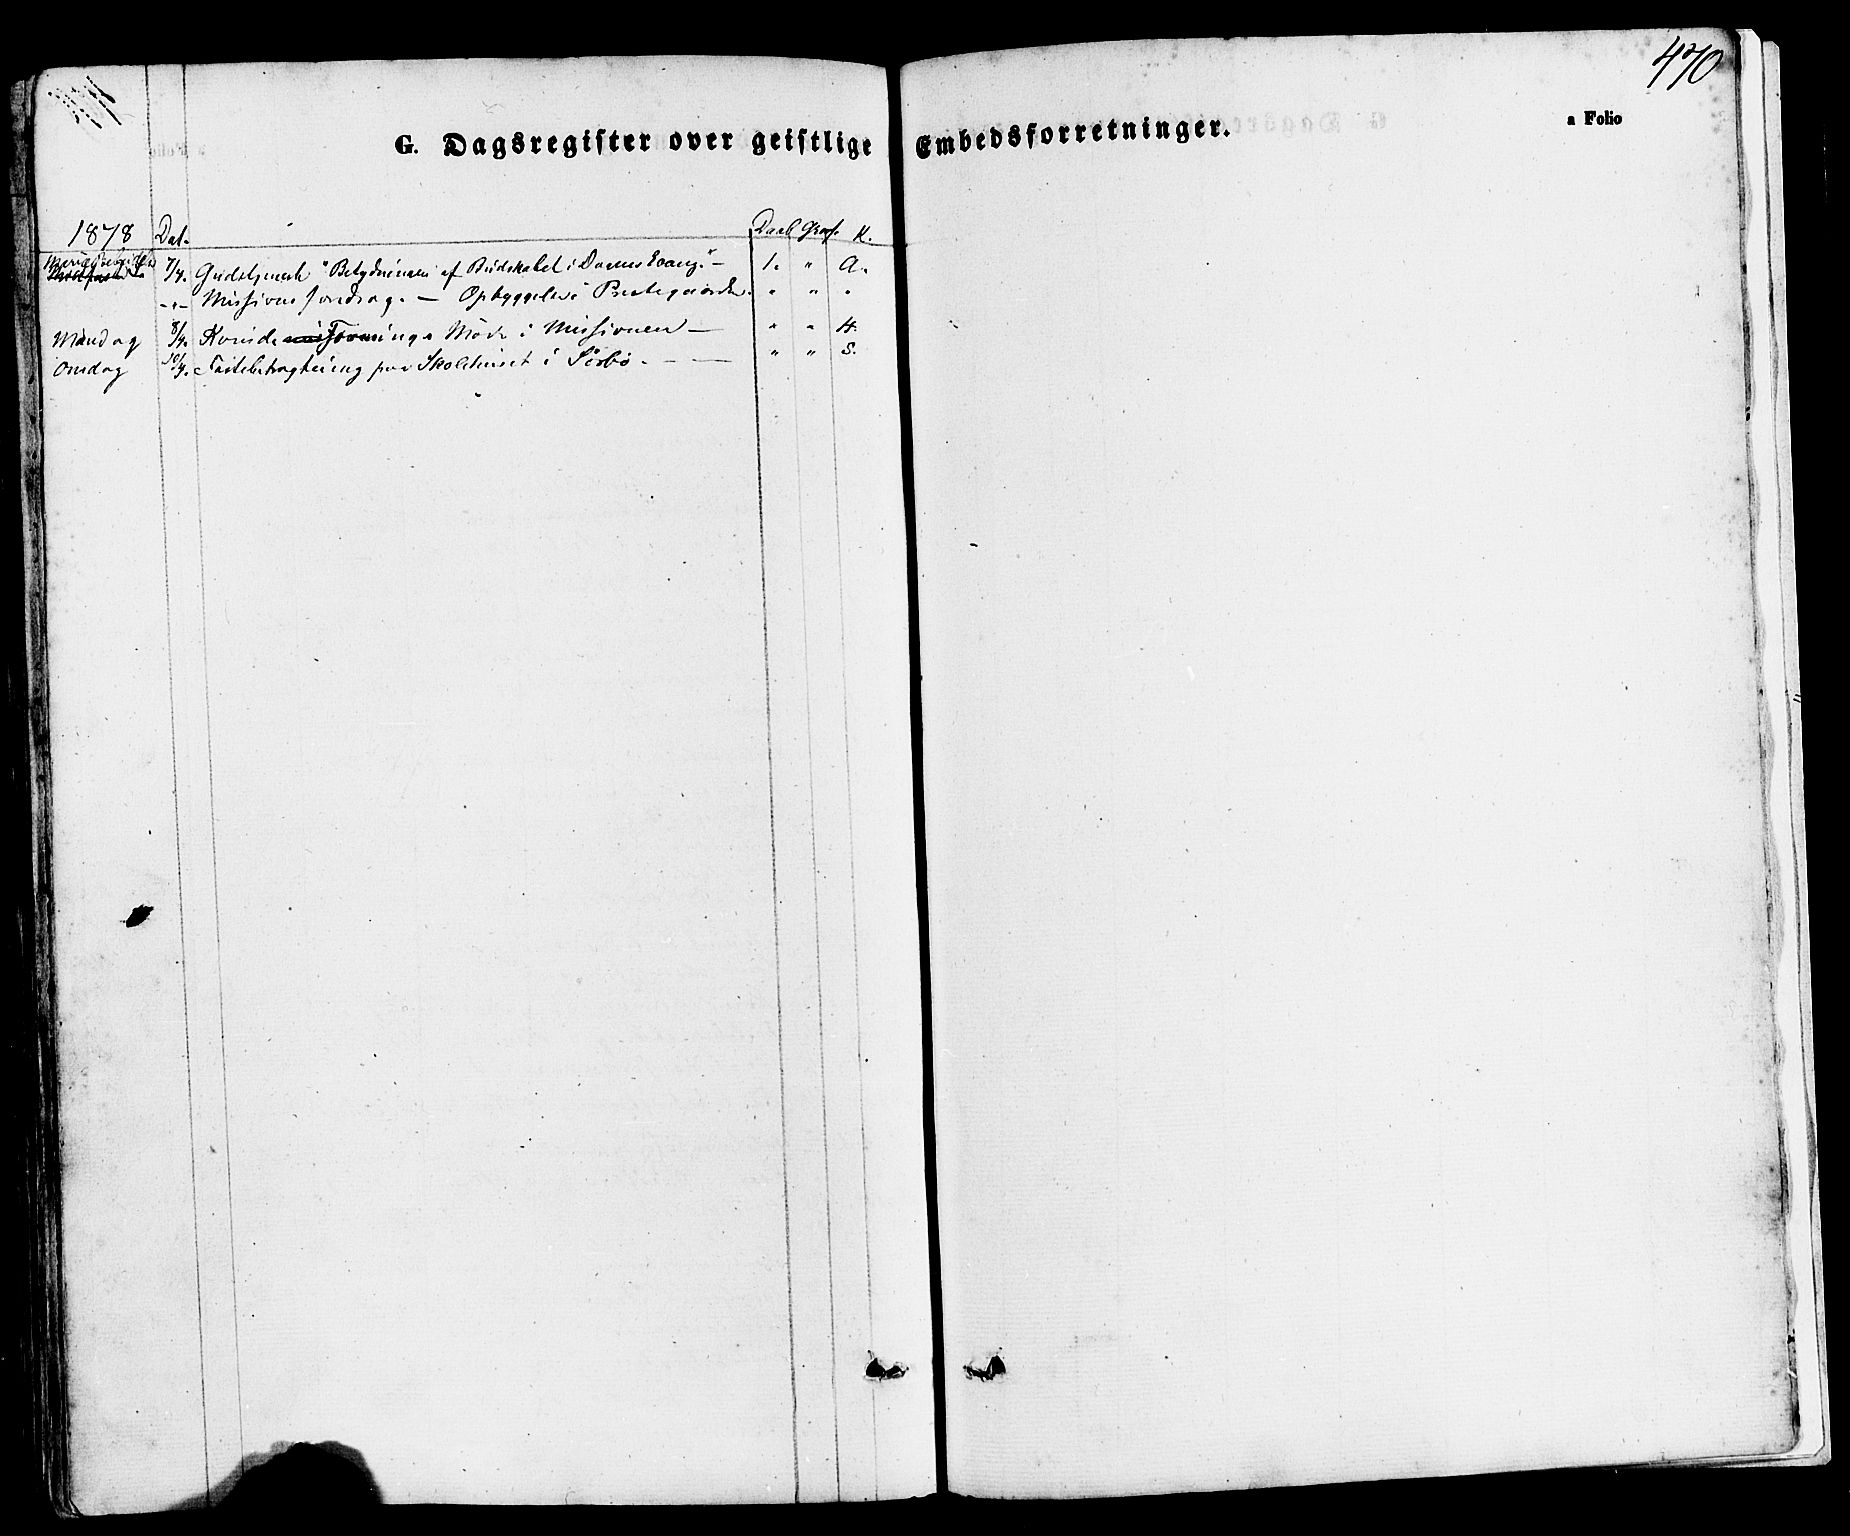 470
a Folio
G. Dagsregister over geistlige Embedsforretninger.
1878 Dat. Daab Grav. K.
Maria Bebud. 7/4. Gudstjeneste "Betydningen af Budskabet i Dagens Evang." — 1. " A.
-"- Missions foredrag. — Opbyggelse i Prestegaarden. " " "
Mandag 8/4. Kvinde Forenings Møde i Missionen — " " H.
Onsdag 10/4. Fastebetragtning paa Skolehuset i Sørbø. — — " " S.